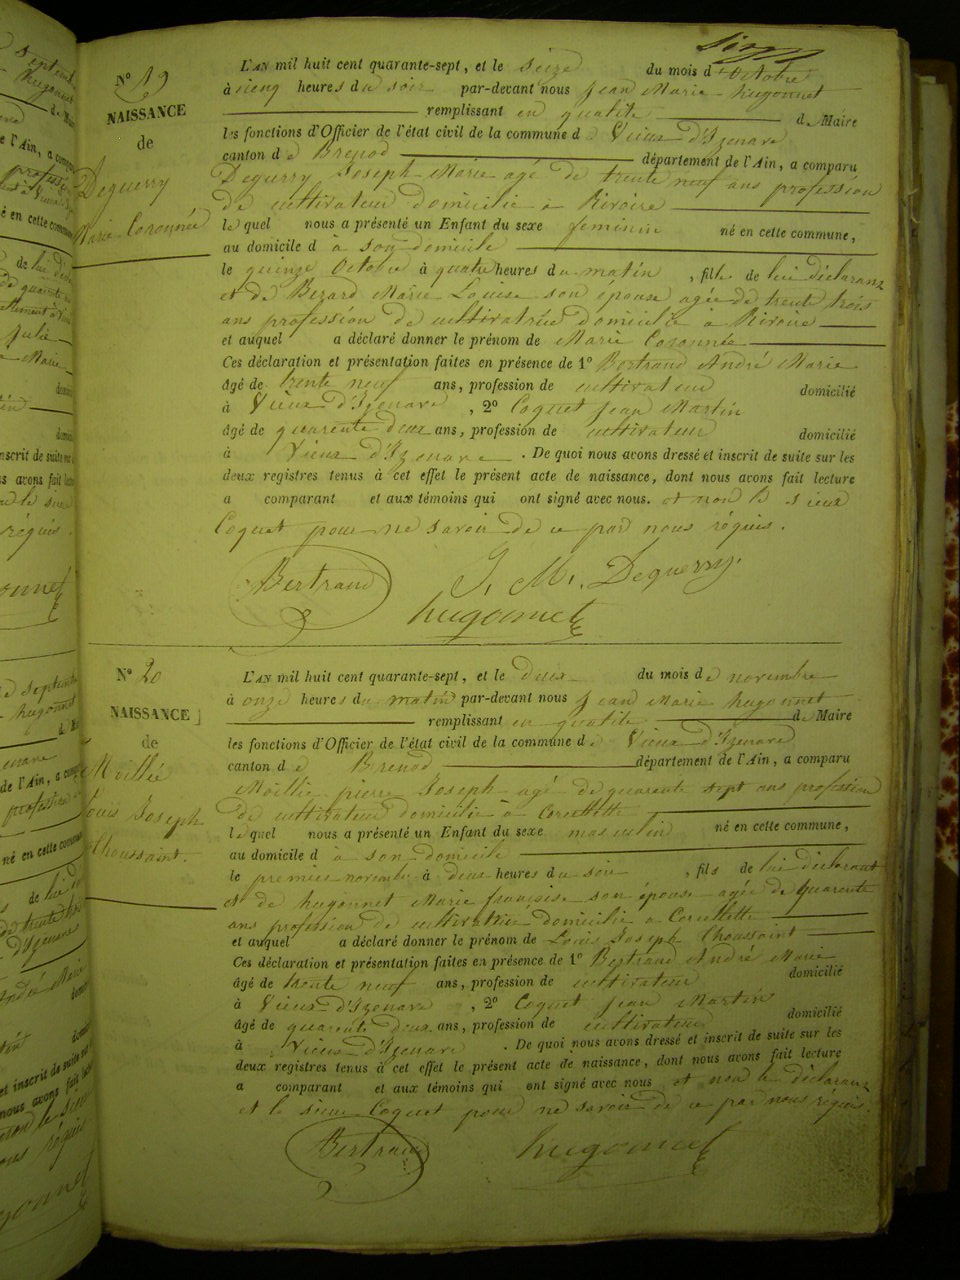 Nº 19
NAISSANCE
de
Deguerry
Marie Coronnée
L'AN mil huit cent quarante-sept, et le seize du mois d'Octobre
à cinq heures du soir par-devant nous Jean Marie hugonnet
remplissant en qualité de Maire
les fonctions d'Officier de l'état civil de la commune de Vieux d'Izenave
canton de Brenod département de l'Ain, a comparu
Deguerry Joseph Marie agé de trente neuf ans profession
de cultivateur domicilié à Rivoire
lequel nous a présenté un Enfant du sexe feminin né en cette commune,
au domicile d à son domicile
le quinze Octobre à quatre heures du matin, fille de lui déclarant
et de Bezard Marie Louise son épouse agée de trente trois
ans profession de cultivatrice domiciliée à Rivoire
et auquel a déclaré donner le prénom de Marie Coronnée
Ces déclaration et présentation faites en présence de 1º Bertrand André Marie
âgé de trente neuf ans, profession de cultivateur domicilié
à Vieux d'Izenave, 2º Coquet Jean Martin
âgé de quarente deux ans, profession de cultivateur domicilié
à Vieux d'Izenave. De quoi nous avons dressé et inscrit de suite sur les
deux registres tenus à cet effet le présent acte de naissance, dont nous avons fait lecture
a comparant et aux témoins qui ont signé avec nous. et non le sieur
Coquet pour ne savoir de ce par nous réquis.
Bertrand J. M. Deguerry.
hugonnet
Nº 20
NAISSANCE
de
Moillie
Louis Joseph
Thoussaint.
L'AN mil huit cent quarante-sept, et le deux du mois de novembre
à onze heures du matin par-devant nous Jean Marie hugonnet
remplissant en qualité de Maire
les fonctions d'Officier de l'état civil de la commune de Vieux d'Izenave
canton de Brenod département de l'Ain, a comparu
Moillie pierre Joseph agé de quarente sept ans profession
de cultivateur domicilié à Corcellette
lequel nous a présenté un Enfant du sexe masculin né en cette commune,
au domicile d à son domicile
le premier novembre à deux heures du soir, fils de lui déclarant
et de hugonnet Marie françoise son épouse agée de quarente
ans profession de cultivatrice domicilié à Corcellette
et auquel a déclaré donner le prénom de Louis Joseph Thoussaint
Ces déclaration et présentation faites en présence de 1º Bertrand André Marie
âgé de trente neuf ans, profession de cultivateur domicilié
à Vieux d'Izenave, 2º Coquet Jean Martin
âgé de quarente deux ans, profession de cultivateur domicilié
à Vieux d'Izenave. De quoi nous avons dressé et inscrit de suite sur les
deux registres tenus à cet effet le présent acte de naissance, dont nous avons fait lecture
a comparant et aux témoins qui ont signé avec nous et non le déclarant
et le sieur Coquet pour ne savoir de ce par nous réquis.
Bertrand hugonnet